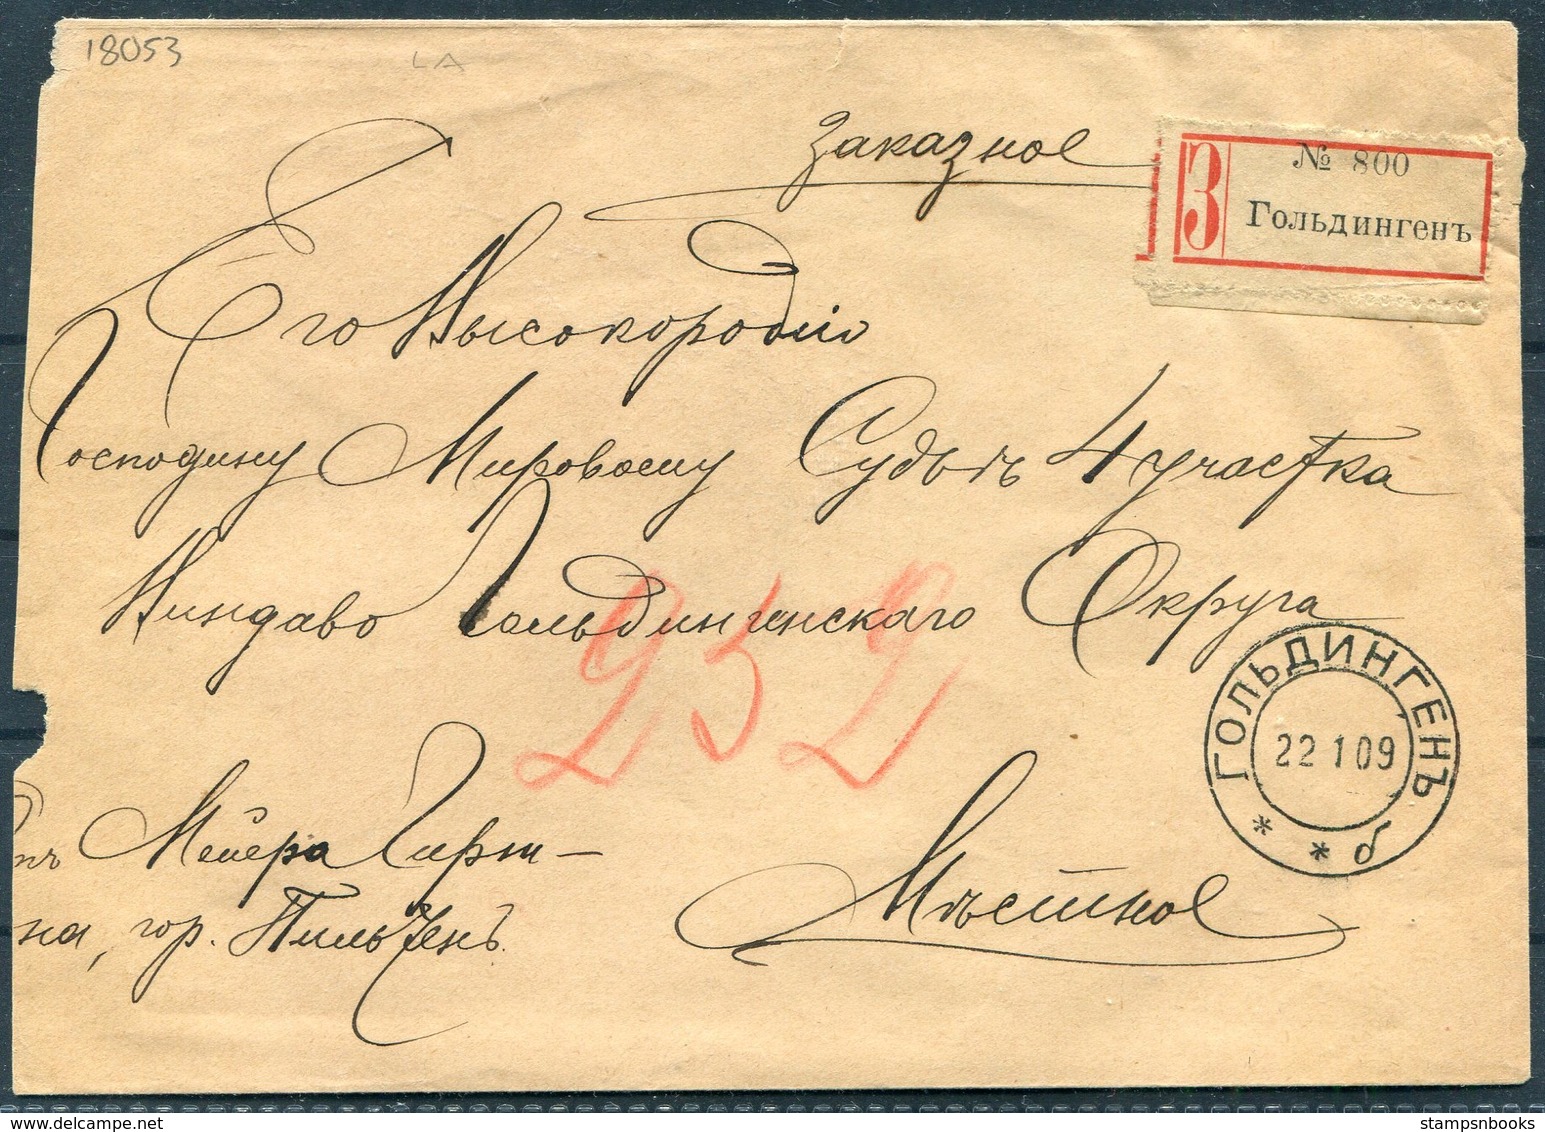 18053
LA
Заказное
З
№ 800
Гольдингенъ
Его Высокородію
Господину Мировому Судьѣ 4 участка
Виндаво Гольдингенскаго Округа
252
ГОЛЬДИНГЕНЪ
22 1 09
* * б
Мейера Гирш-
на, гор.
Мѣстное
stampsnbooks